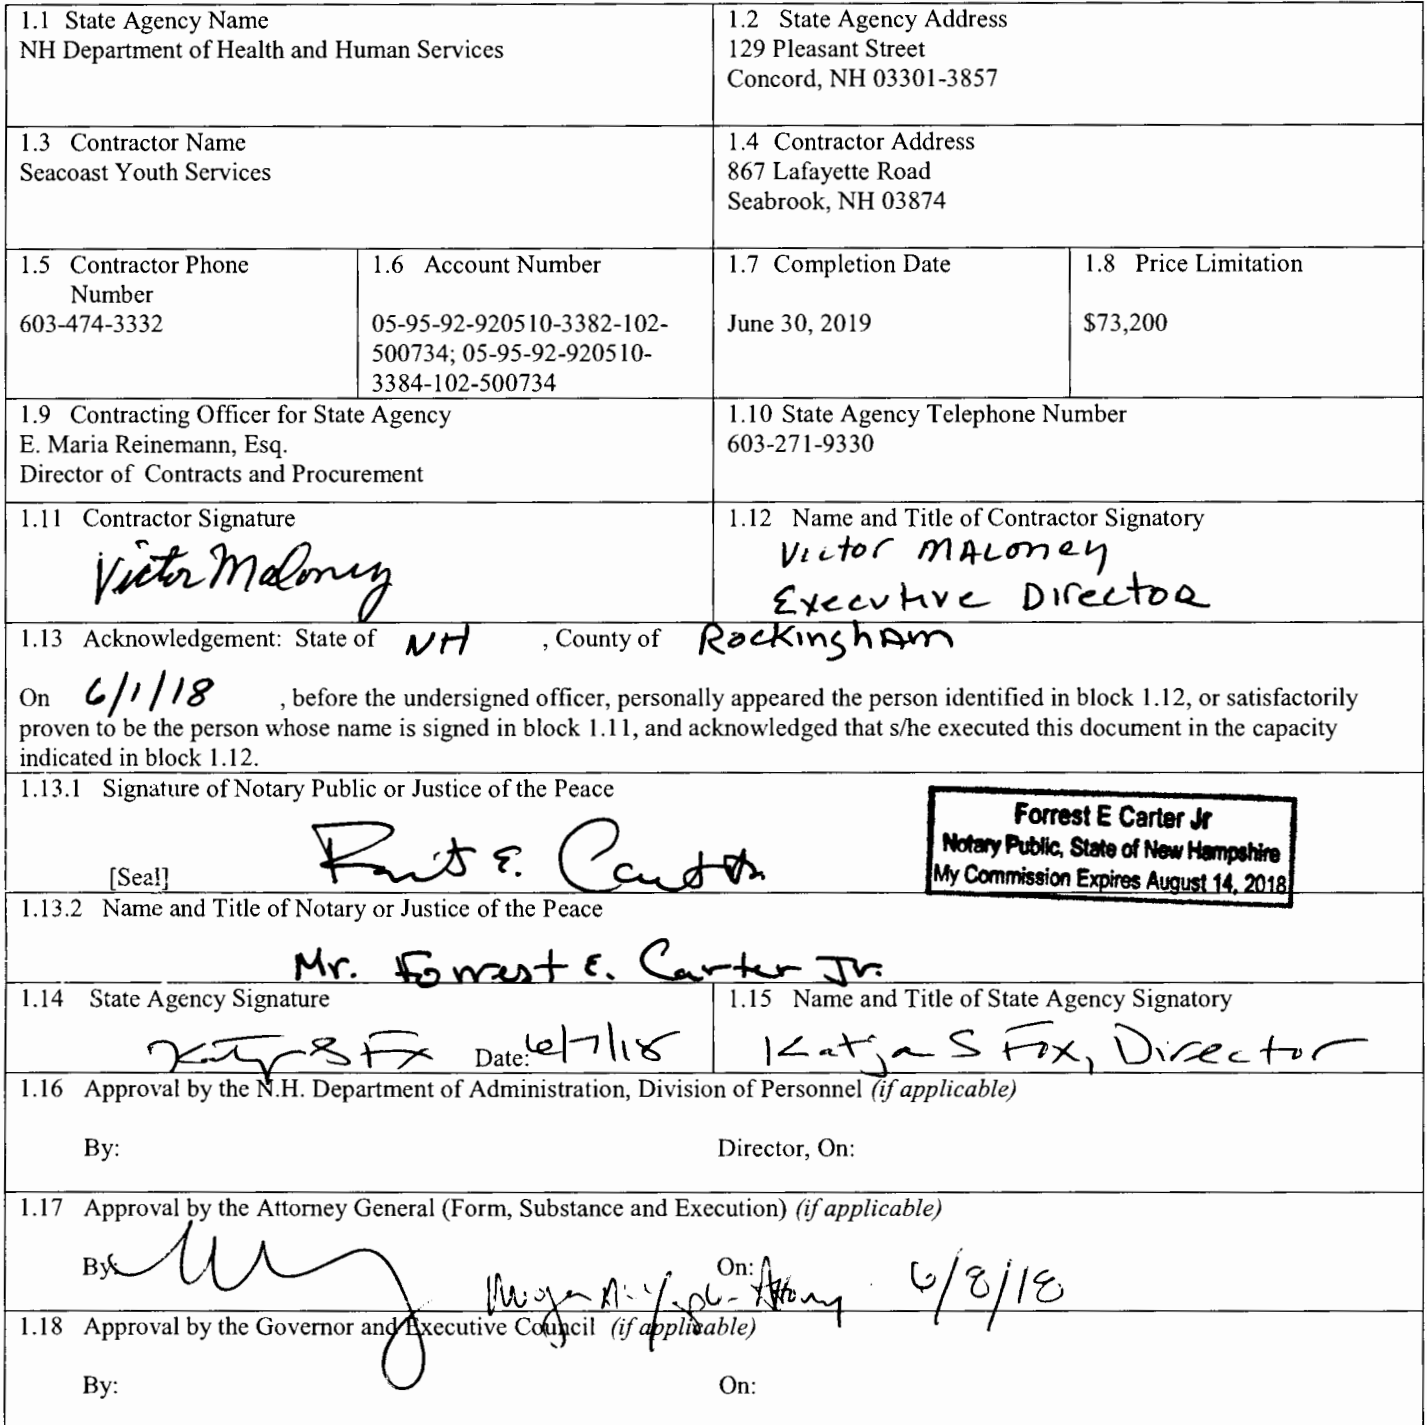 1.1 State Agency Name
NH Department of Health and Human Services
1.2 State Agency Address
129 Pleasant Street
Concord, NH 03301-3857
1.3 Contractor Name
Seacoast Youth Services
1.4 Contractor Address
867 Lafayette Road
Seabrook, NH 03874
1.5 Contractor Phone
Number
603-474-3332
1.6 Account Number
05-95-92-920510-3382-102-
500734; 05-95-92-920510-
3384-102-500734
1.7 Completion Date
June 30, 2019
1.8 Price Limitation
$73,200
1.9 Contracting Officer for State Agency
E. Maria Reinemann, Esq.
Director of Contracts and Procurement
1.10 State Agency Telephone Number
603-271-9330
1.11 Contractor Signature
Victor Maloney
1.12 Name and Title of Contractor Signatory
Victor MALoney
Executive Director
1.13 Acknowledgement: State of NH , County of Rockingham
On 6/1/18 , before the undersigned officer, personally appeared the person identified in block 1.12, or satisfactorily
proven to be the person whose name is signed in block 1.11, and acknowledged that s/he executed this document in the capacity
indicated in block 1.12.
1.13.1 Signature of Notary Public or Justice of the Peace
[Seal]
E.
Forrest E Carter Jr
Notary Public, State of New Hampshire
My Commission Expires August 14, 2018
1.13.2 Name and Title of Notary or Justice of the Peace
Mr. Forrest E. Carter Jr.
1.14 State Agency Signature
Date: 6/7/18
1.15 Name and Title of State Agency Signatory
Katja S Fox, Director
1.16 Approval by the N.H. Department of Administration, Division of Personnel (if applicable)
By:
Director, On:
1.17 Approval by the Attorney General (Form, Substance and Execution) (if applicable)
By:
On: 6/8/18
1.18 Approval by the Governor and Executive Council (if applicable)
By:
On: